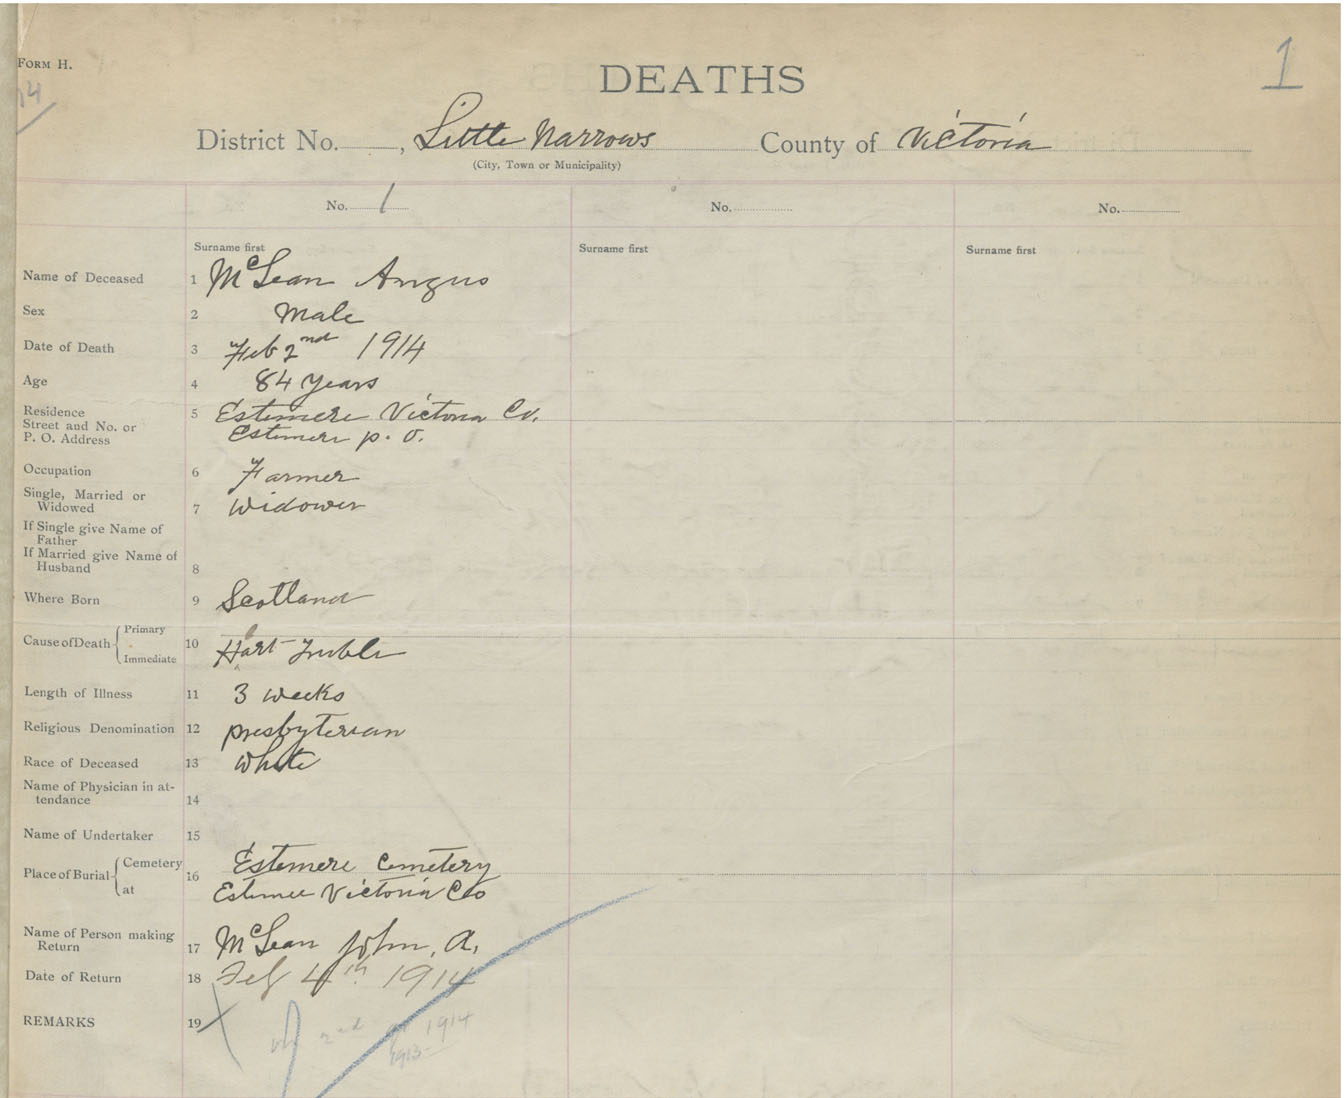 FORM H.
DEATHS
1
District No. , Little Narrows County of Victoria
(City, Town or Municipality)
No. 1 No. No.
Surname first Surname first Surname first
Name of Deceased 1 McLean Angus
Sex 2 Male
Date of Death 3 Feb 2nd 1914
Age 4 84 years
Residence 5 Estemere Victoria Co.
Street and No. or
P. O. Address Estemere p. o.
Occupation 6 Farmer
Single, Married or
Widowed 7 Widower
If Single give Name of
Father
If Married give Name of
Husband 8
Where Born 9 Scotland
Cause of Death Primary
Immediate 10 Heart Truble
Length of Illness 11 3 weeks
Religious Denomination 12 presbyterian
Race of Deceased 13 White
Name of Physician in at-
tendance 14
Name of Undertaker 15
Place of Burial Cemetery 16 Estemere Cemetery
at Estmere Victoria Co
Name of Person making
Return 17 McLean John, A.
Date of Return 18 Feb 4th 1914
REMARKS 19
2nd 1914
1913